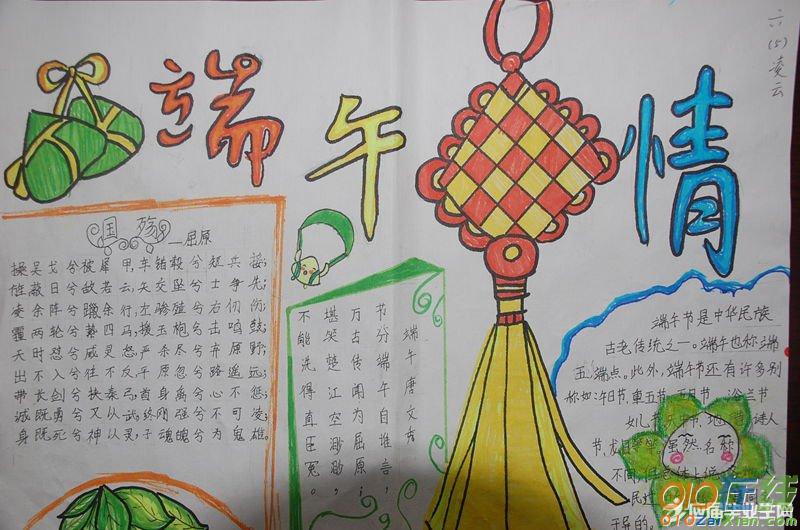 端午情
六(5)凌云
国殇
——屈原
操吴戈兮被犀甲,车错毂兮短兵接;
旌蔽日兮敌若云,矢交坠兮士争先;
凌余阵兮躐余行,左骖殪兮右刃伤;
霾两轮兮絷四马,援玉枹兮击鸣鼓;
天时怼兮威灵怒,严杀尽兮弃原野;
出不入兮往不反,平原忽兮路遥远;
带长剑兮挟秦弓,首身离兮心不惩;
诚既勇兮又以武,终刚强兮不可凌;
身既死兮神以灵,子魂魄兮为鬼雄。
端午 唐 文秀
节分端午自谁言,
万古传闻为屈原;
堪笑楚江空渺渺,
不能洗得直臣冤。
端午节是中华民族
古老传统之一。端午也称端
五,端点。此外,端午节还有许多别
称如:午日节、重五节、五月节、浴兰节
女儿节、地 诗人
节, 虽然名称
不同,但总体上
民